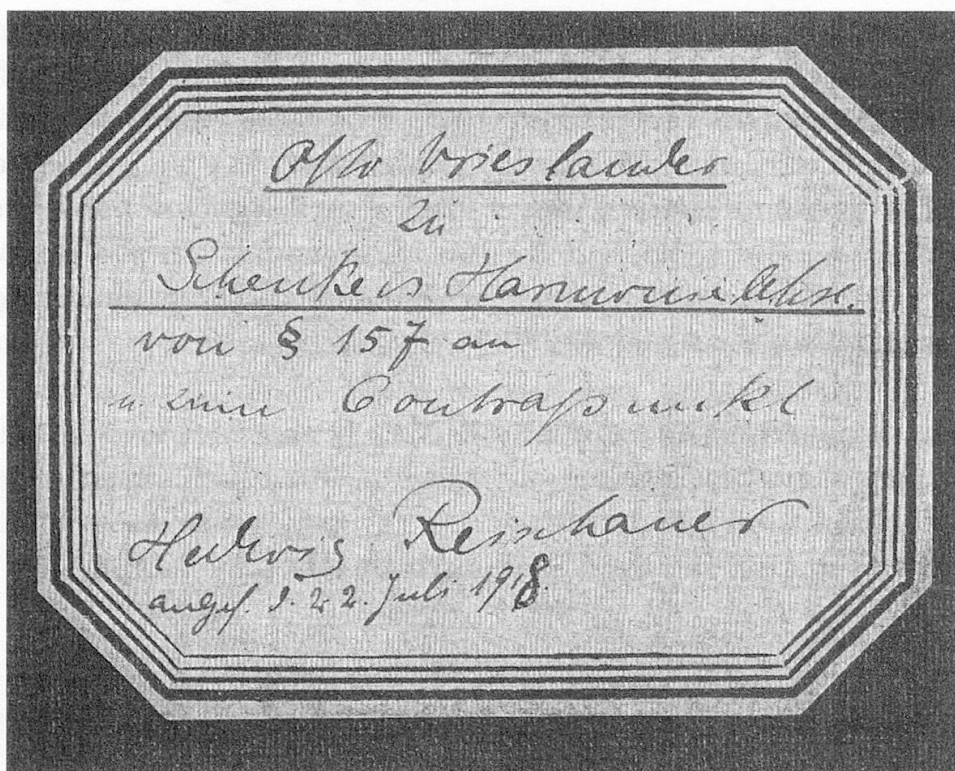 Otto Vrieslander
zu
Schenkers Harmonielehre.
von § 157 an
u. zum Contrapunkt
Hedwig Reischauer
angef. d. 22. Juli 1918.